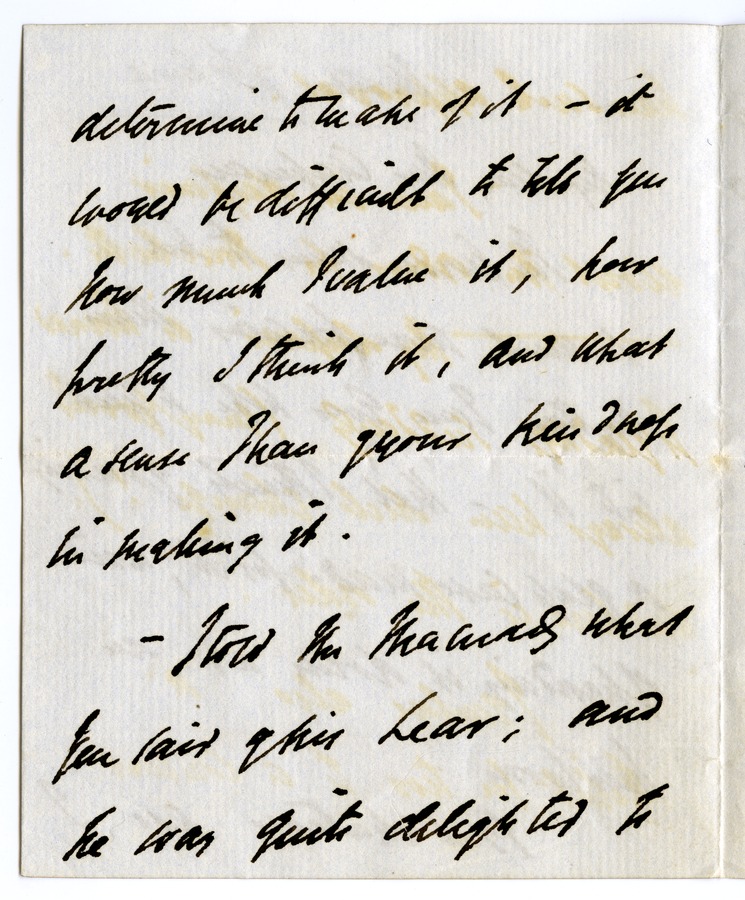 determine to make of it – it
would be difficult to tell you
how much I value it, how
pretty I think it, and what
a sense I have of your kindness
in making it.
– I told Mr Thackeray what
you said of his Lear; and
he was quite delighted to